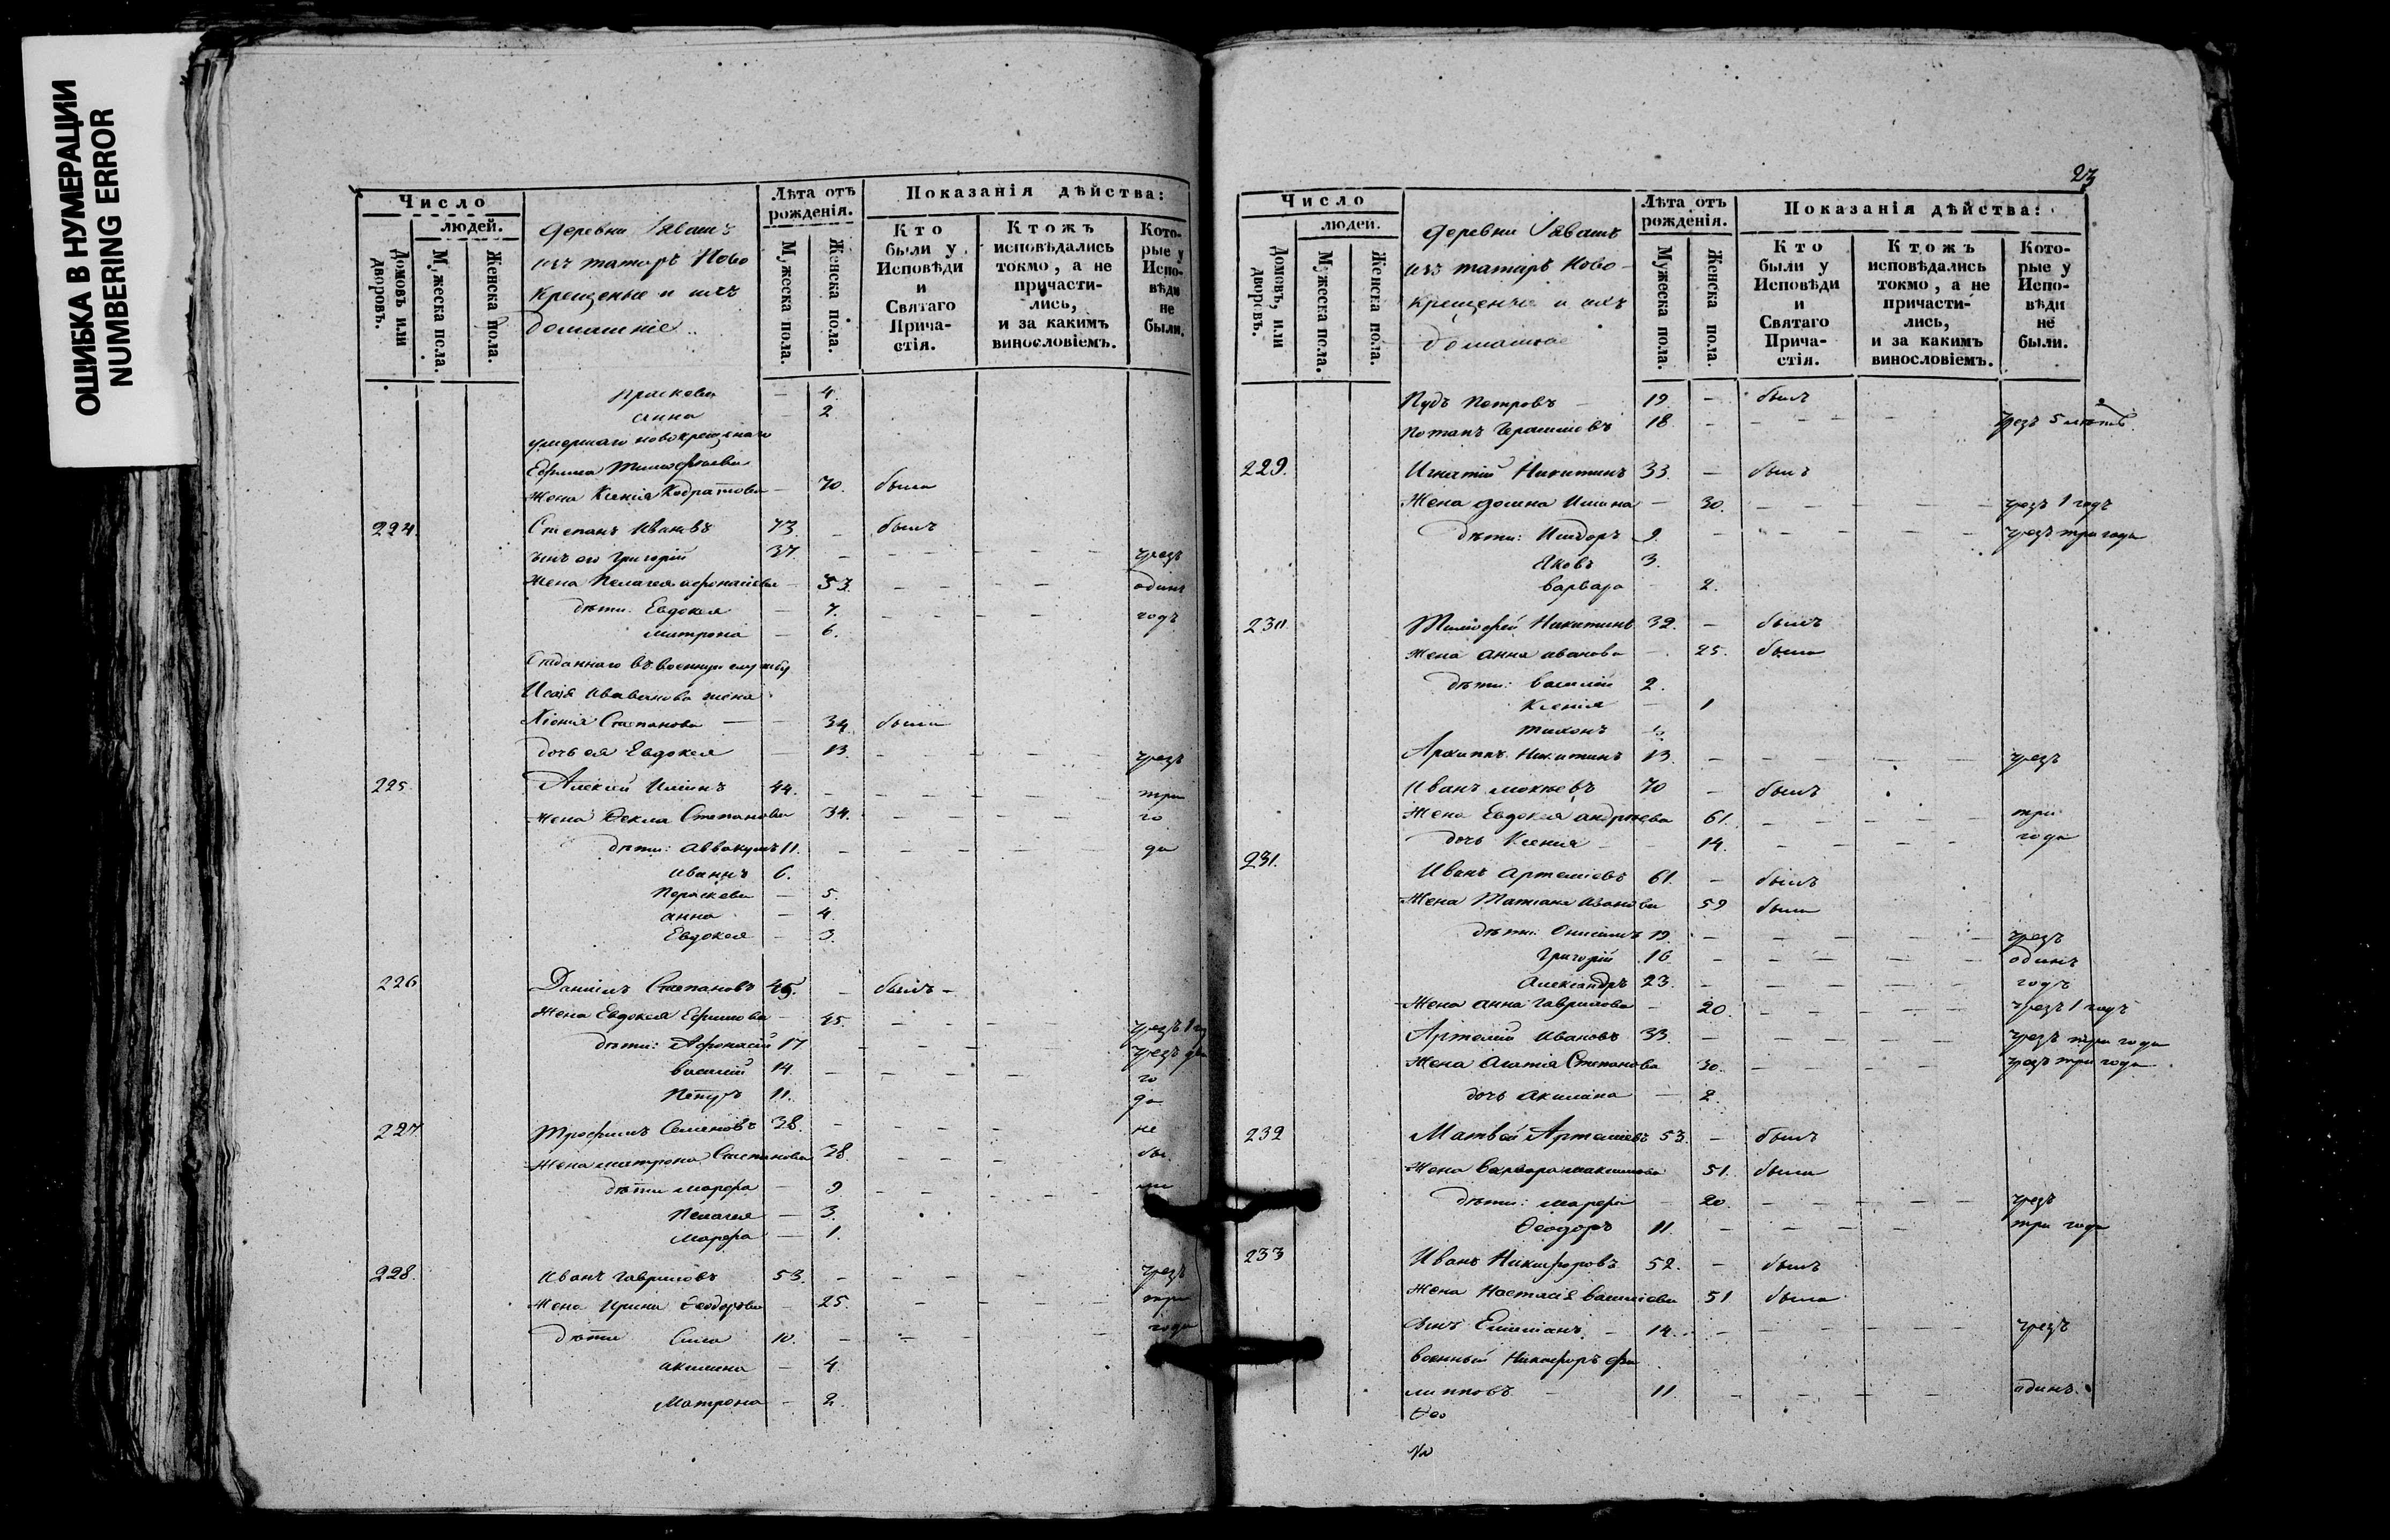 ОШИБКА В НУМЕРАЦИИ
NUMBERING ERROR
Число
людей.
Домовъ или дворовъ.
Мужеска пола.
Женска пола.
деревни
изъ татаръ Ново
крещеные и ихъ
домашніе
Лѣта отъ рожденія.
Мужеска пола.
Женска пола.
Показанія дѣйства:
Кто были у Исповѣди и Святаго Прича- стія.
Ктожъ исповѣдались токмо, а не причасти- лись, и за какимъ винословіемъ.
Кото- рые у Испо- вѣди не были.
Прасковья — 4.
Анна — 2
умершаго новокрещенаго
Ефима Тимофѣева
Жена Ксенія — 70. была
224. Степанъ Ивановъ 73. — былъ
сынъ его Григорій 37. — — — — — чрезъ
Жена Пелагея Афонасіева — 33. — — — — одинъ
дѣти: Евдокея — 7. — — — — годъ
Матрона — 6.
Отданнаго въ военную службу
жена
Степанова — — 34 была
дочь ея Евдокея — 13. — — — — чрезъ
225. Алексѣй 44. — — — — — три
Жена Фекла Степанова 34. — — — — — го
дѣти: Аввакумъ 11. — — — — — да
Иванъ 6.
Параскева — 5.
Анна — 4.
Евдокея — 3.
226 Даніилъ Степановъ 45. — былъ —
Жена Евдокея Ефимова — 45. — — — — чрезъ 1 го
дѣти: Афонасій 17 — — — чрезъ два
Василій 14. — — — — го
Петръ 11. да
227 Трофимъ Семеновъ 38. — — — — не
Жена Матрона Степанова 28. — — — бы
дѣти Марфа — 9 — — — — — ли
Пелагея — 3.
Марфа — 1.
228. Иванъ Гавриловъ 53. — — — — чрезъ
Жена Ирина Феодорова — 25. — — — — три
дѣти Сила 10. — — — — года
Акилина — 4
Матрона — 2.
23
Число
людей.
Домовъ, или дворовъ.
Мужеска пола.
Женска пола.
деревни
изъ татаръ Ново-
крещеные и ихъ
домашніе
Лѣта отъ рожденія.
Мужеска пола.
Женска пола.
Показанія дѣйства:
Кто были у Исповѣди и Святаго Прича- стія.
Ктожъ исповѣдались токмо, а не причасти- лись, и за какимъ винословіемъ.
Кото- рые у Испо- вѣди не были.
Пудъ Петровъ — 19. — былъ
Потапъ 18 — — — — — чрезъ 5 лѣтъ
229. Игнатій Никитинъ 33. — былъ
Жена — 30. — — — — — чрезъ 1 годъ
дѣти: Исидоръ 9. — — — — — чрезъ три года
Яковъ 3.
Варвара — 2.
230. Тимофей Никитинъ 32. — былъ
Жена Анна Иванова — 25. была
дѣти: Василій 2.
Ксенія — 1
Тихонъ
Архиппъ Никитинъ 13. — — — — — чрезъ
Иванъ 70 — былъ
Жена Евдокея Андреева 61. — — — — — три
дочь Ксенія — — 14. — — — — года
231. Иванъ Артеміевъ 61. — былъ
Жена Татіана Иванова 59 была
дѣти: Онисимъ 19. — — — — — чрезъ
Григорій 16 — — — — — одинъ
Александръ 23. — — — — — годъ
Жена Анна Гаврилова — 20. — — — — — чрезъ 1 годъ
Артемій Ивановъ 33. — — — — — чрезъ три года
Жена Агапія Степанова 30. — — — — — чрезъ три года
дочь Акилина — 2.
232 Матвей Артеміевъ 53. — былъ
Жена Варвара Максимова 51. была
дѣти: Марфа — 20. — — — — — чрезъ
Феодоръ 11. — — — — — три года
233 Иванъ Никифоровъ 52. — былъ
Жена Настасія Василіева 51 была
сынъ Емиліанъ — 14. — — — — — — чрезъ
военный Никифоръ Фи
липповъ — 11. — — — — одинъ
Фео